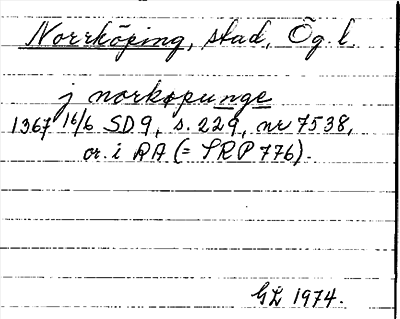 Norrköping, stad, Ög. l.
j norkøpunge
1367 16/6 SD 9, s. 229, nr 7538,
or. i RA (= SRP 776).
GL 1974.